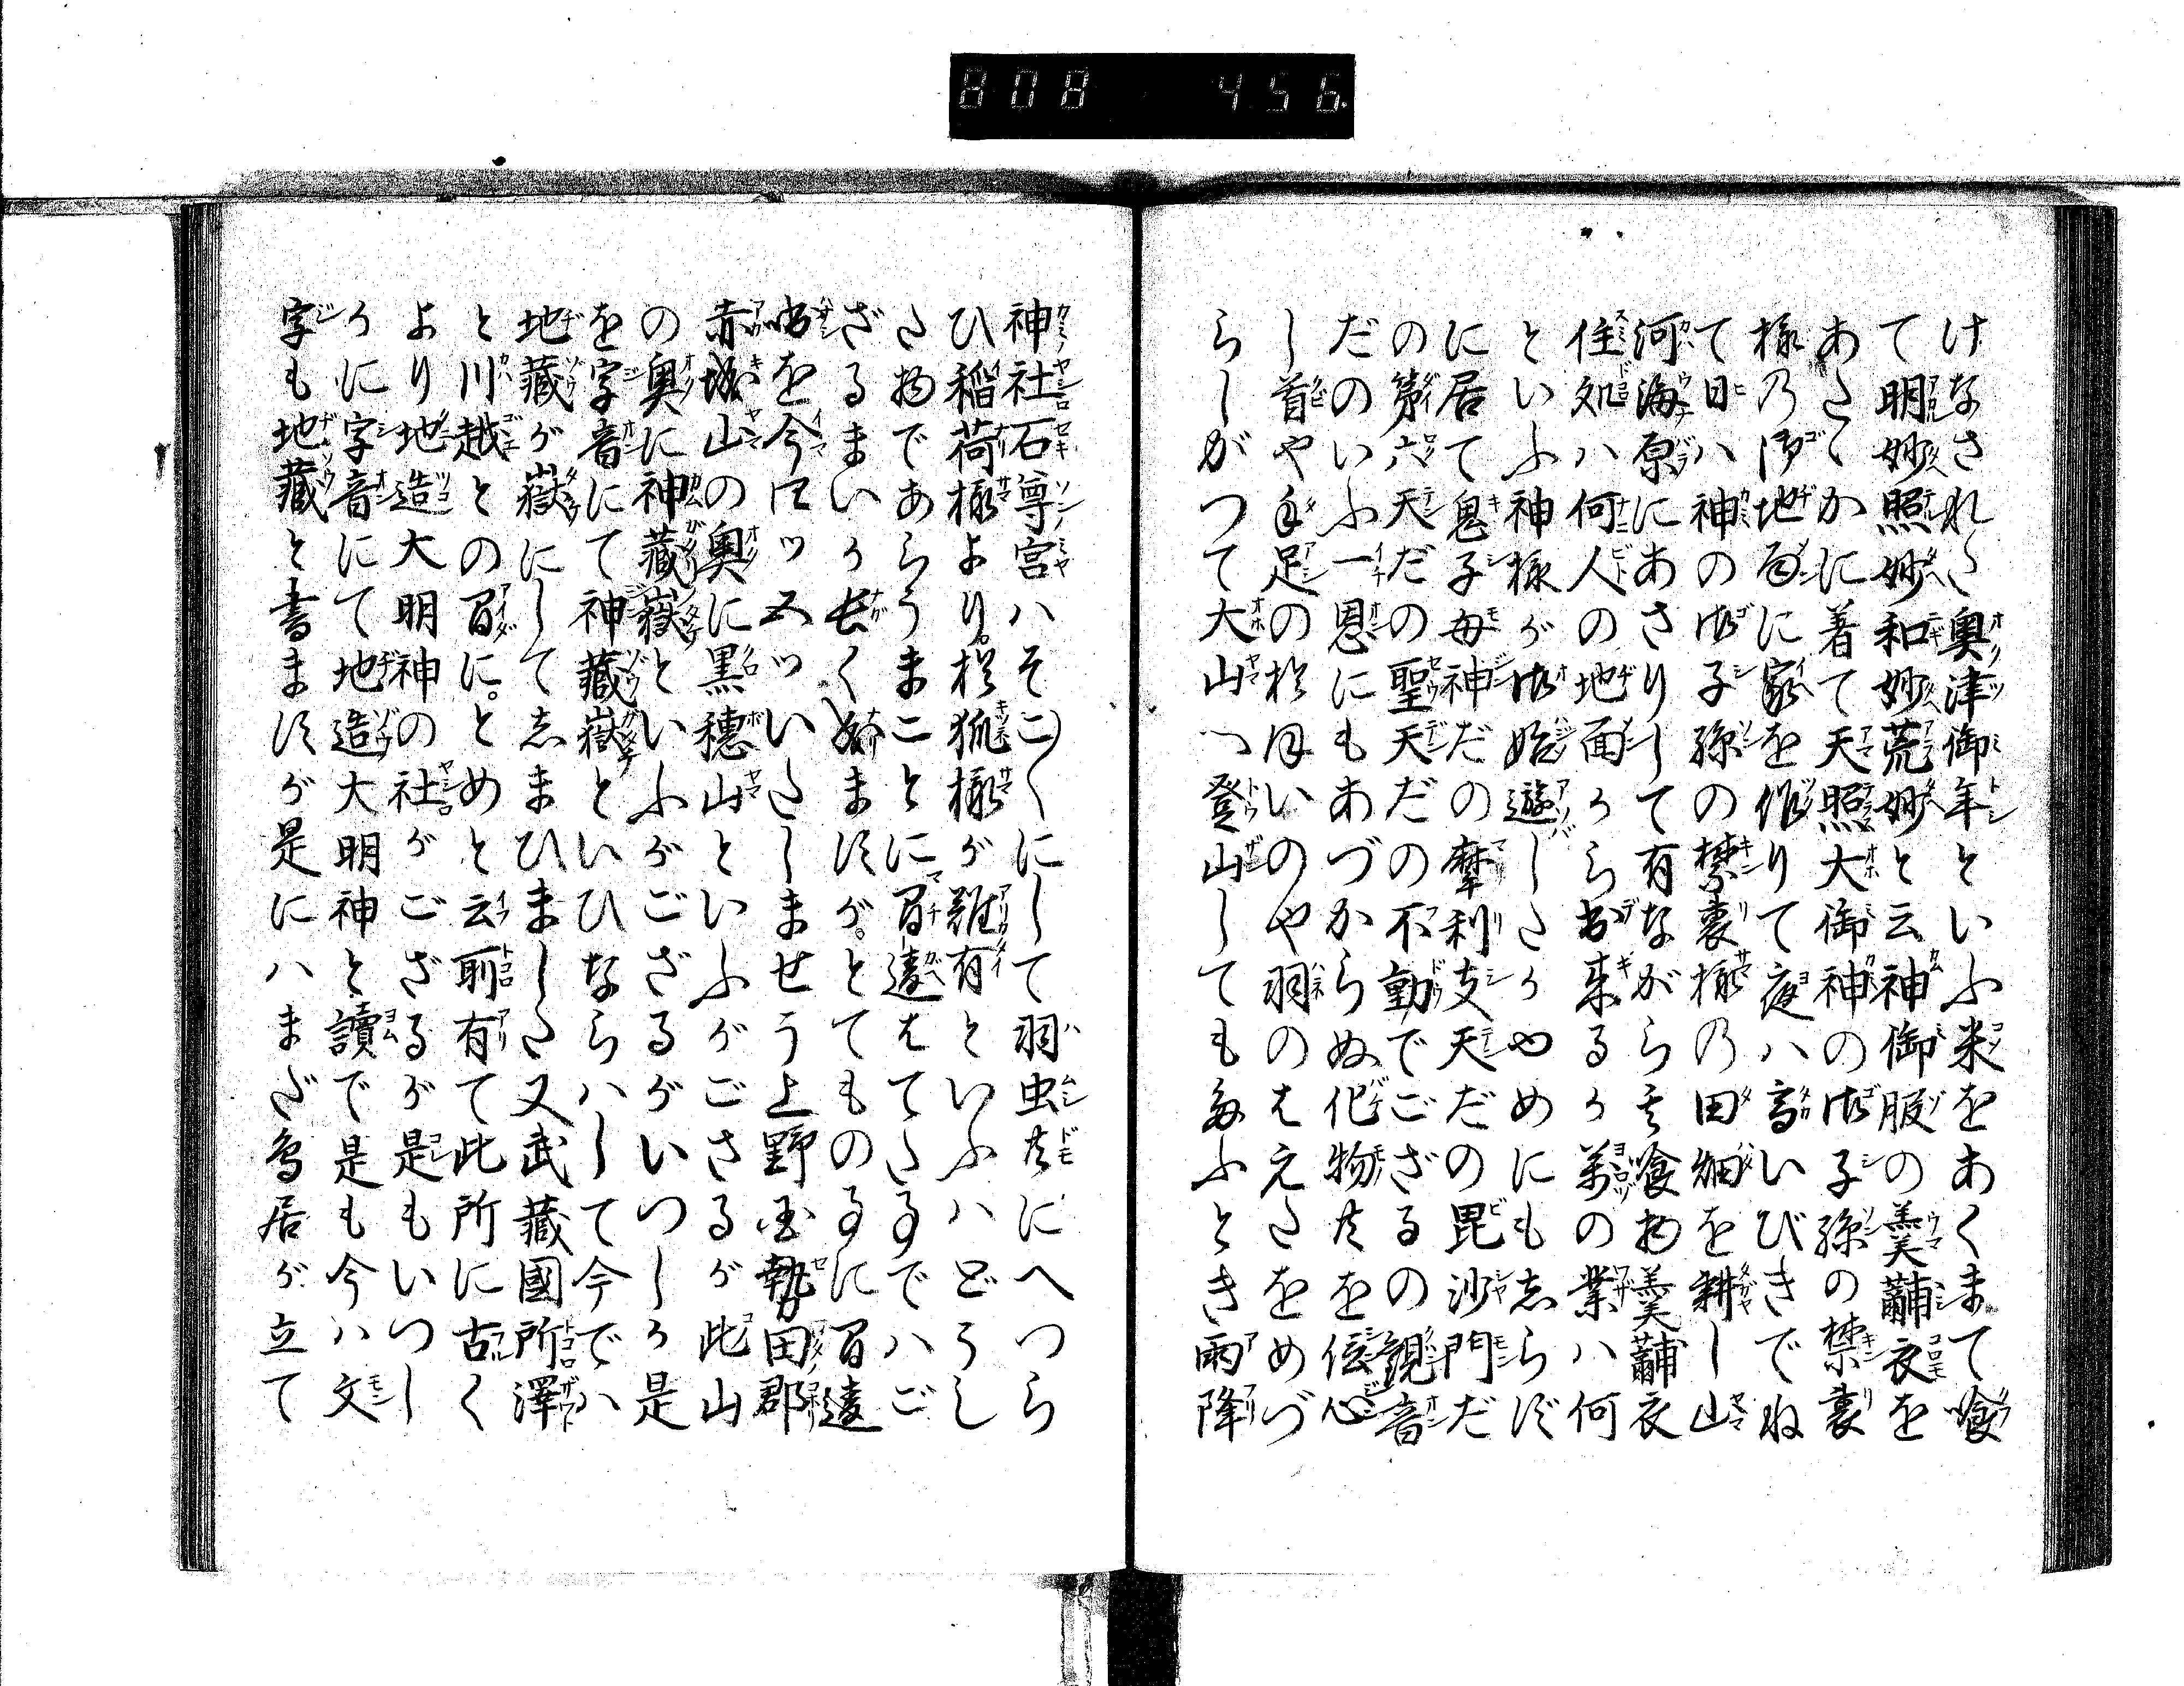 808 456
けなされた奥津御年といふ米をあくまて喰
て明妙照妙和妙荒妙と云神御服の美麗衣を
あたゝかに着て天照大御神の御子孫の禁裏
様乃御地面に家を作りて夜ハ高いびきでね
て日ハ神の御子孫の禁裏様乃田畑を耕し山
河海原にあさりして有ながら其喰物美麗衣
住処ハ何人の地面から出来るか萬の業ハ何
といふ神様が御始遊したかゆめにも志らず
に居て鬼子母神だの摩利支天だの毘沙門だ
の第六天だの聖天だの不動でござるの観音
だのいふ一恩にもあづからぬ化物共を信心
し首や手足の折ほいのや羽のはえたをめづ
らしがつて大山へ登山しても多ふとき雨降
神社石尊宮ハそこ〳〵にして羽虫共にへつら
ひ稲荷様より。狐様が難有といふハどうし
た物であらうまことに間違はてた事でハご
ざるまいか長く成ますが。とてものことに間違
出を今一ツ二ツいたしませう上野国勢田郡
赤城山の奥に黒穂山といふがござるが此山
の奥に神藏嶽といふがござるがいつしか是
を字音にて神藏嶽といひならハして今でハ
地藏が嶽にして志まひました又武藏國所澤
と川越との間に。とめと云所有て此所に古く
より地造大明神の社がござるが是もいつし
かに字音にて地造大明神と讀で是も今ハ文
字も地藏と書ますが是にハまだ鳥居が立て